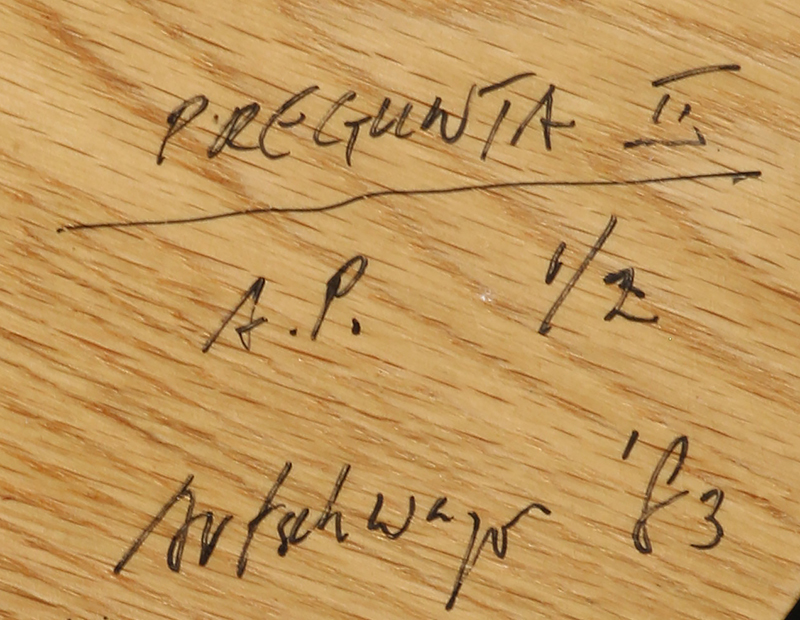 PREGUNTA II
A.P. 1/2
Artschwager '83